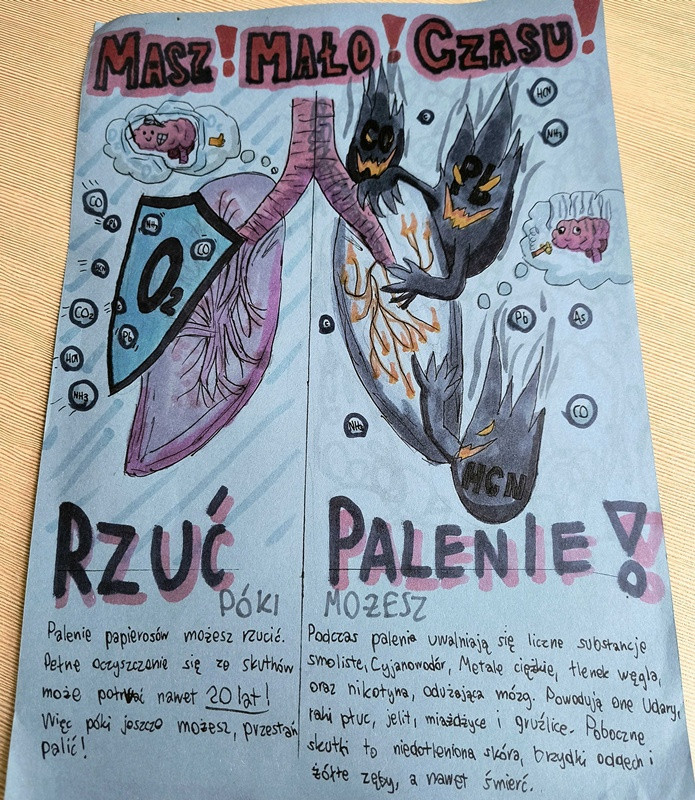 MASZ! MAŁO! CZASU!
CO
HCN
NH₃
Pb
O₂
NH₃
CO
Pb
CO
Pb
CO₂
HCN
NH₃
Pb
As
CO
NH₃
HCN
RZUĆ PALENIE!
PÓKI MOŻESZ
Palenie papierosów możesz rzucić.
Pełne oczyszczanie się ze skutków
może potrwać nawet 20 lat!
Więc póki jeszcze możesz, przestań
palić!
Podczas palenia uwalniają się liczne substancje
smoliste, Cyjanowodór, Metale ciężkie, tlenek węgla,
oraz nikotyna, odurzająca mózg. Powodują one udary,
raki płuc, jelit, miażdżyce i gruźlice. Poboczne
skutki to niedotleniona skóra, brzydki oddech i
żółte zęby, a nawet śmierć.